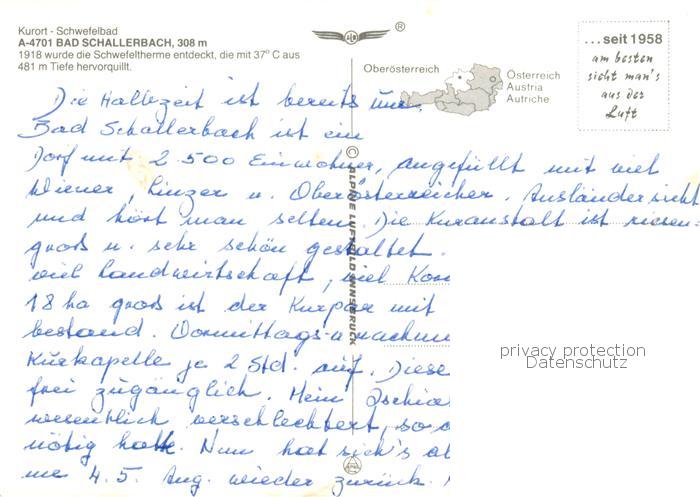 Kurort - Schwefelbad
A-4701 BAD SCHALLERBACH, 308 m
1918 wurde die Schwefeltherme entdeckt, die mit 37° C aus
481 m Tiefe hervorquillt.
®
Oberösterreich
Österreich
Austria
Autriche
...seit 1958
am besten
sieht man's
aus der
Luft
© ALPINE LUFTBILD INNSBRUCK
Die Halbzeit ist bereits um.
Bad Schallerbach ist ein
Dorf mit 2 500 Einwohner, angefüllt mit viel
Wiener, Linzer u. Oberösterreicher. Ausländer sieht
und hört man selten. Die Kuranstalt ist riesen-
groß u. sehr schön gestaltet.
viel Landwirtschaft, viel
18 ha groß ist der Kurpar mit
bestand. Vormittags u. nachm
Kurkapelle je 2 Std. auf. Diese
frei zugänglich. Mein Ischia
wesentlich verschlechtert, so
nötig hatte. Nun hat sich's
me 4.5. Aug. wieder zurück.
privacy protection
Datenschutz